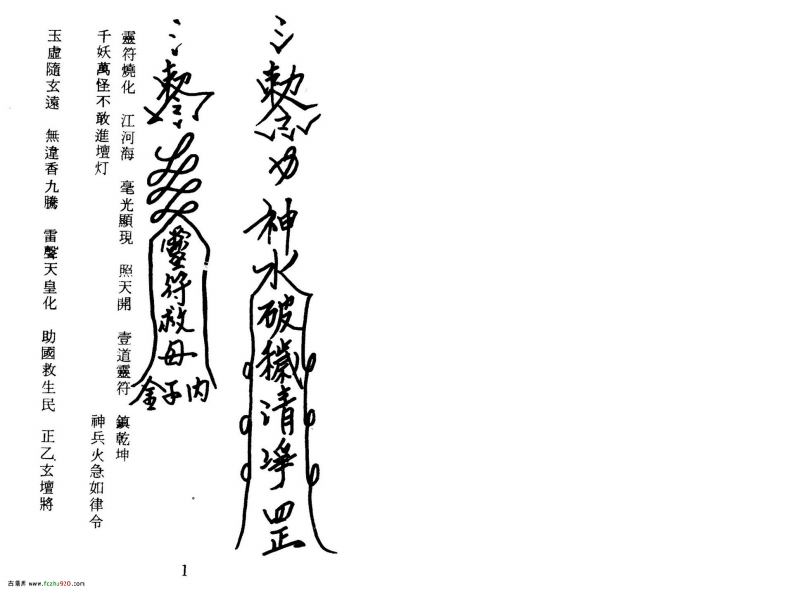 敕令
神水破穢清淨罡
敕令
靈符救母
金子內
靈符燒化　江河海　毫光顯現　照天開　壹道靈符　鎮乾坤
千妖萬怪不敢進壇灯　神兵火急如律令
玉虛隨玄遠　無違香九騰　雷聲天皇化　助國救生民　正乙玄壇將
1
古易库 www.fczhu920.com